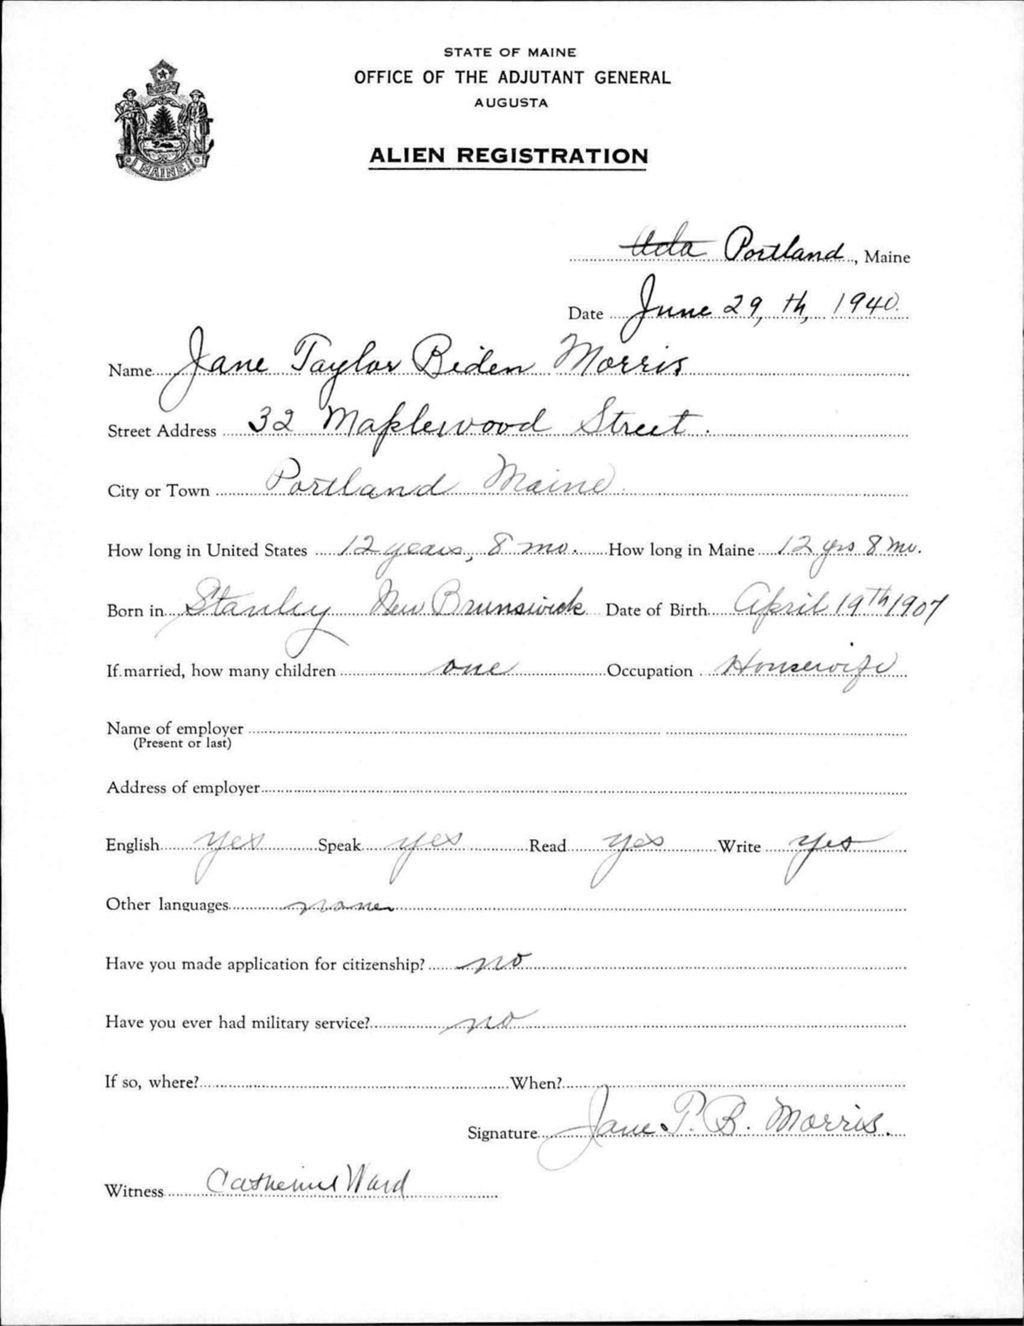 STATE OF MAINE
OFFICE OF THE ADJUTANT GENERAL
AUGUSTA
MAINE
ALIEN REGISTRATION
Portland, Maine
Date June 29, th, 1940.
Name Jane Taylor Biden Morris
Street Address 32 Maplewood Street.
City or Town Portland Maine.
How long in United States 12 years, 8 mo. How long in Maine 12 yrs 8 mo.
Born in Stanley New Brunswick Date of Birth April 19th 1907
If married, how many children one Occupation Housewife
Name of employer
(Present or last)
Address of employer
English yes Speak yes Read yes Write yes
Other languages none
Have you made application for citizenship? no
Have you ever had military service? no
If so, where? When?
Signature Jane T. B. Morris.
Witness Catherine Ward